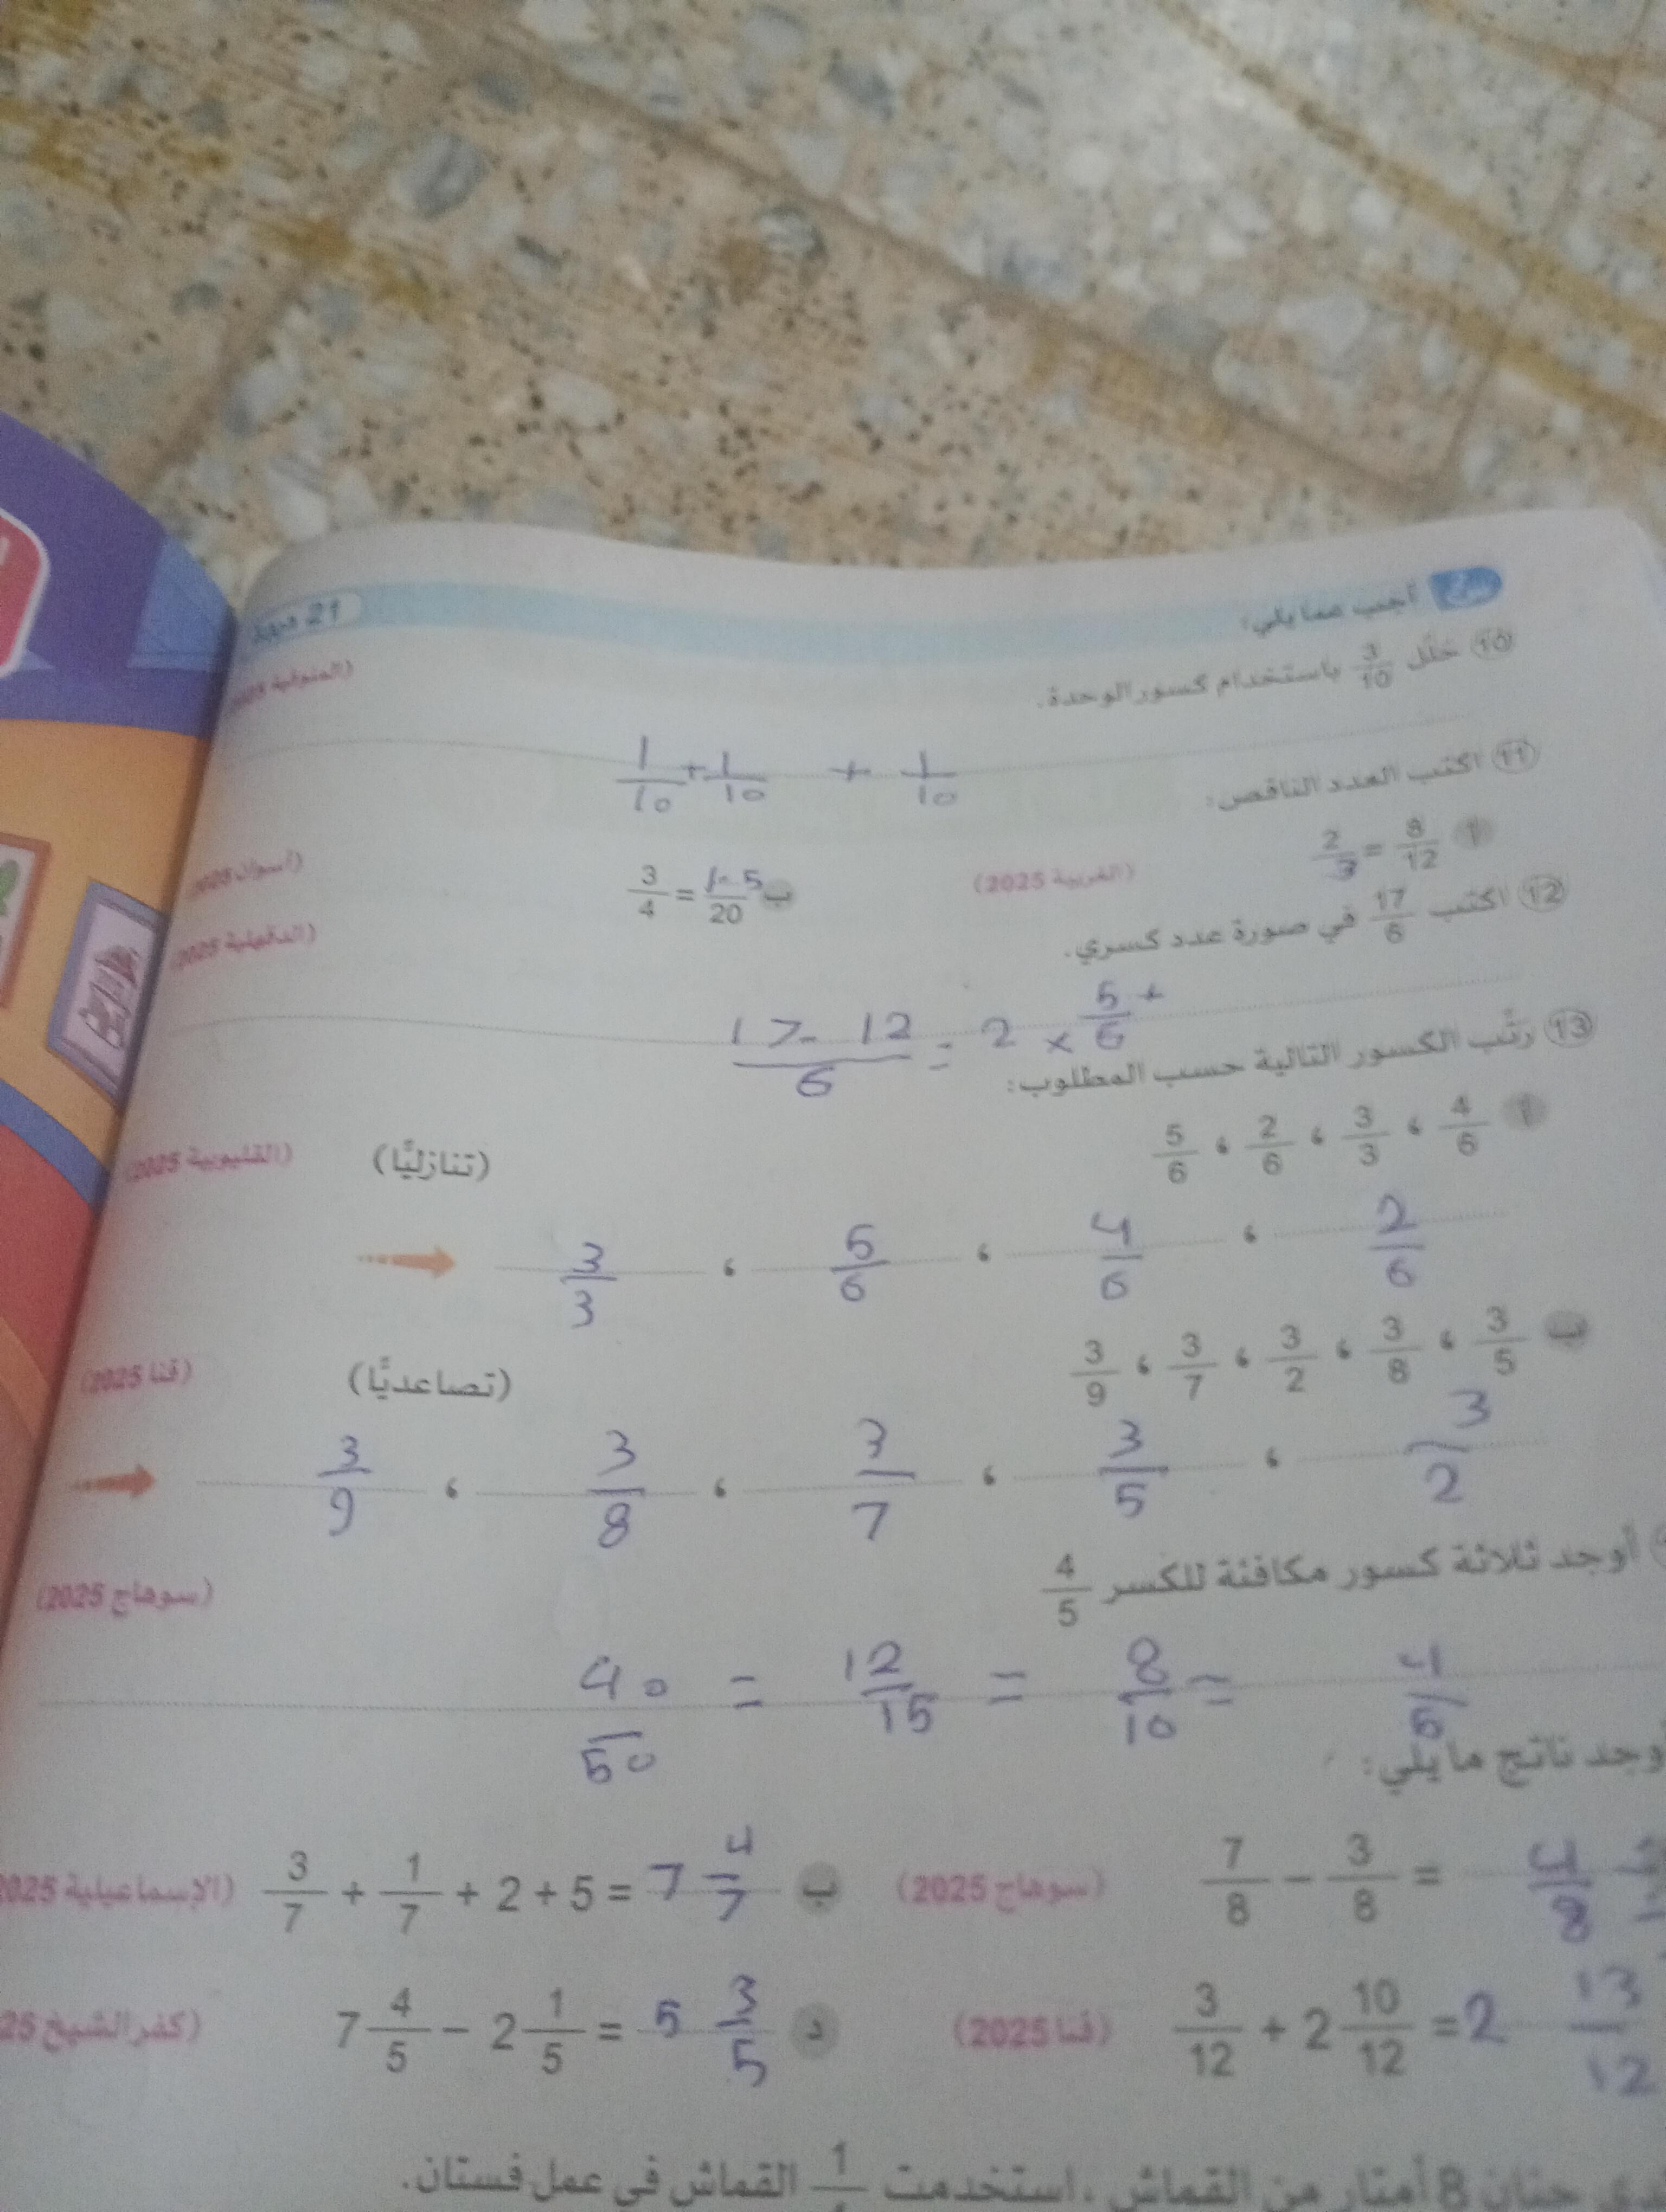 أجب عما يلي:
21 درجة
⑩ حلل 3/10 باستخدام كسور الوحدة. (المنوفية 2025)
1/10 + 1/10 + 1/10
⑪ اكتب العدد الناقص:
أ 8/12 = 2/3 (الغربية 2025) ب 3/4 = 15/20 (أسوان 2025)
⑫ اكتب 17/6 في صورة عدد كسري. (الدقهلية 2025)
17 - 12/6 = 2 × 5/6 +
⑬ رتب الكسور التالية حسب المطلوب:
أ 4/6 ، 3/3 ، 2/6 ، 5/6 (تنازليًّا) (القليوبية 2025)
3/3 ، 5/6 ، 4/6 ، 2/6
ب 3/5 ، 3/8 ، 3/2 ، 3/7 ، 3/9 (تصاعديًّا) (قنا 2025)
3/9 ، 3/8 ، 3/7 ، 3/5 ، 3/2
أوجد ثلاثة كسور مكافئة للكسر 4/5 (سوهاج 2025)
40/50 = 12/15 = 8/10 = 4/5
أوجد ناتج ما يلي:
7/8 - 3/8 = 4/8 (سوهاج 2025) ب 3/7 + 1/7 + 2 + 5 = 7 4/7 (الإسماعيلية 2025
3/12 + 2 10/12 = 2 13/12 (قنا 2025) د 7 4/5 - 2 1/5 = 5 3/5 (كفر الشيخ 25
حنان 8 أمتار من القماش ، استخدمت القماش في عمل فستان.